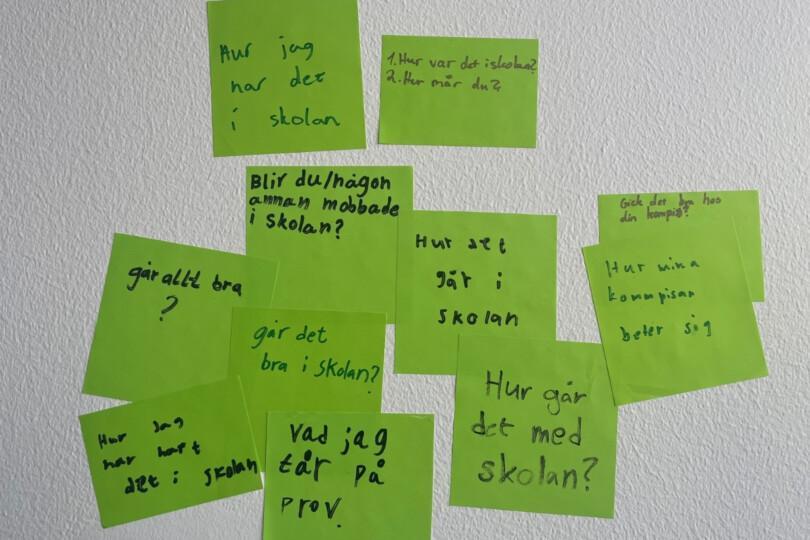 Hur jag
har det
i skolan
1. Hur var det i skolan?
2. Hur mår du?
Blir du/någon
annan mobbade
i skolan?
Gick det bra hos
din kompis?
Hur det
går i
skolan
Hur mina
kommpisar
beter sig
går allt bra
?
går det
bra i skolan?
Hur går
det med
skolan?
Hur jag
har haft
det i skolan
Vad jag
får på
prov.